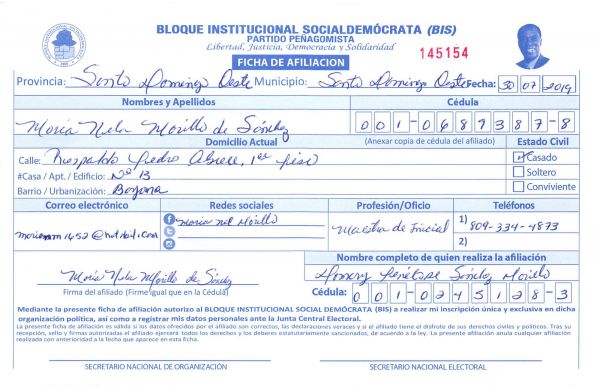 BLOQUE INSTITUCIONAL SOCIALDEMÓCRATA (BIS)
PARTIDO PEÑAGOMISTA
Libertad, Justicia, Democracia y Solidaridad
145154
FICHA DE AFILIACION
Provincia: Santo Domingo Oeste Municipio: Santo Domingo Oeste Fecha: 30 07 2019
Nombres y Apellidos Cédula
María Nela Morillo de Sánchez 001-0689387-8
Domicilio Actual (Anexar copia de cédula del afiliado) Estado Civil
Calle: Respaldo Piedro 1er piso Casado
#Casa / Apt. / Edificio: No 13 Soltero
Barrio / Urbanización: Bayona Conviviente
Correo electrónico Redes sociales Profesión/Oficio Teléfonos
mariamm1652@hotmail.com María nel Morillo Maestra de Inicial 1) 809-334-4873
2)
Nombre completo de quien realiza la afiliación
María Nela Morillo de Sánchez Sánchez Morillo
Firma del afiliado (Firme igual que en la Cédula) Cédula: 001-0245128-3
Mediante la presente ficha de afiliación autorizo al BLOQUE INSTITUCIONAL SOCIAL DEMÓCRATA (BIS) a realizar mi inscripción única y exclusiva en dicha
organización política, así como a registrar mis datos personales ante la Junta Central Electoral.
La presente ficha de afiliación será válida si los datos ofrecidos por el afiliado son correctos, las declaraciones veraces y si el afiliado tiene el disfrute de sus derechos civiles y políticos. Tras su
recepción, sello y firmas autorizadas el afiliado ejercerá todos los derechos y los deberes estatutariamente sancionados, de acuerdo a la ley. La presente afiliación anula cualquier afiliación
realizada con anterioridad a la fecha que aparece en esta ficha.
SECRETARIO NACIONAL DE ORGANIZACIÓN SECRETARIO NACIONAL ELECTORAL